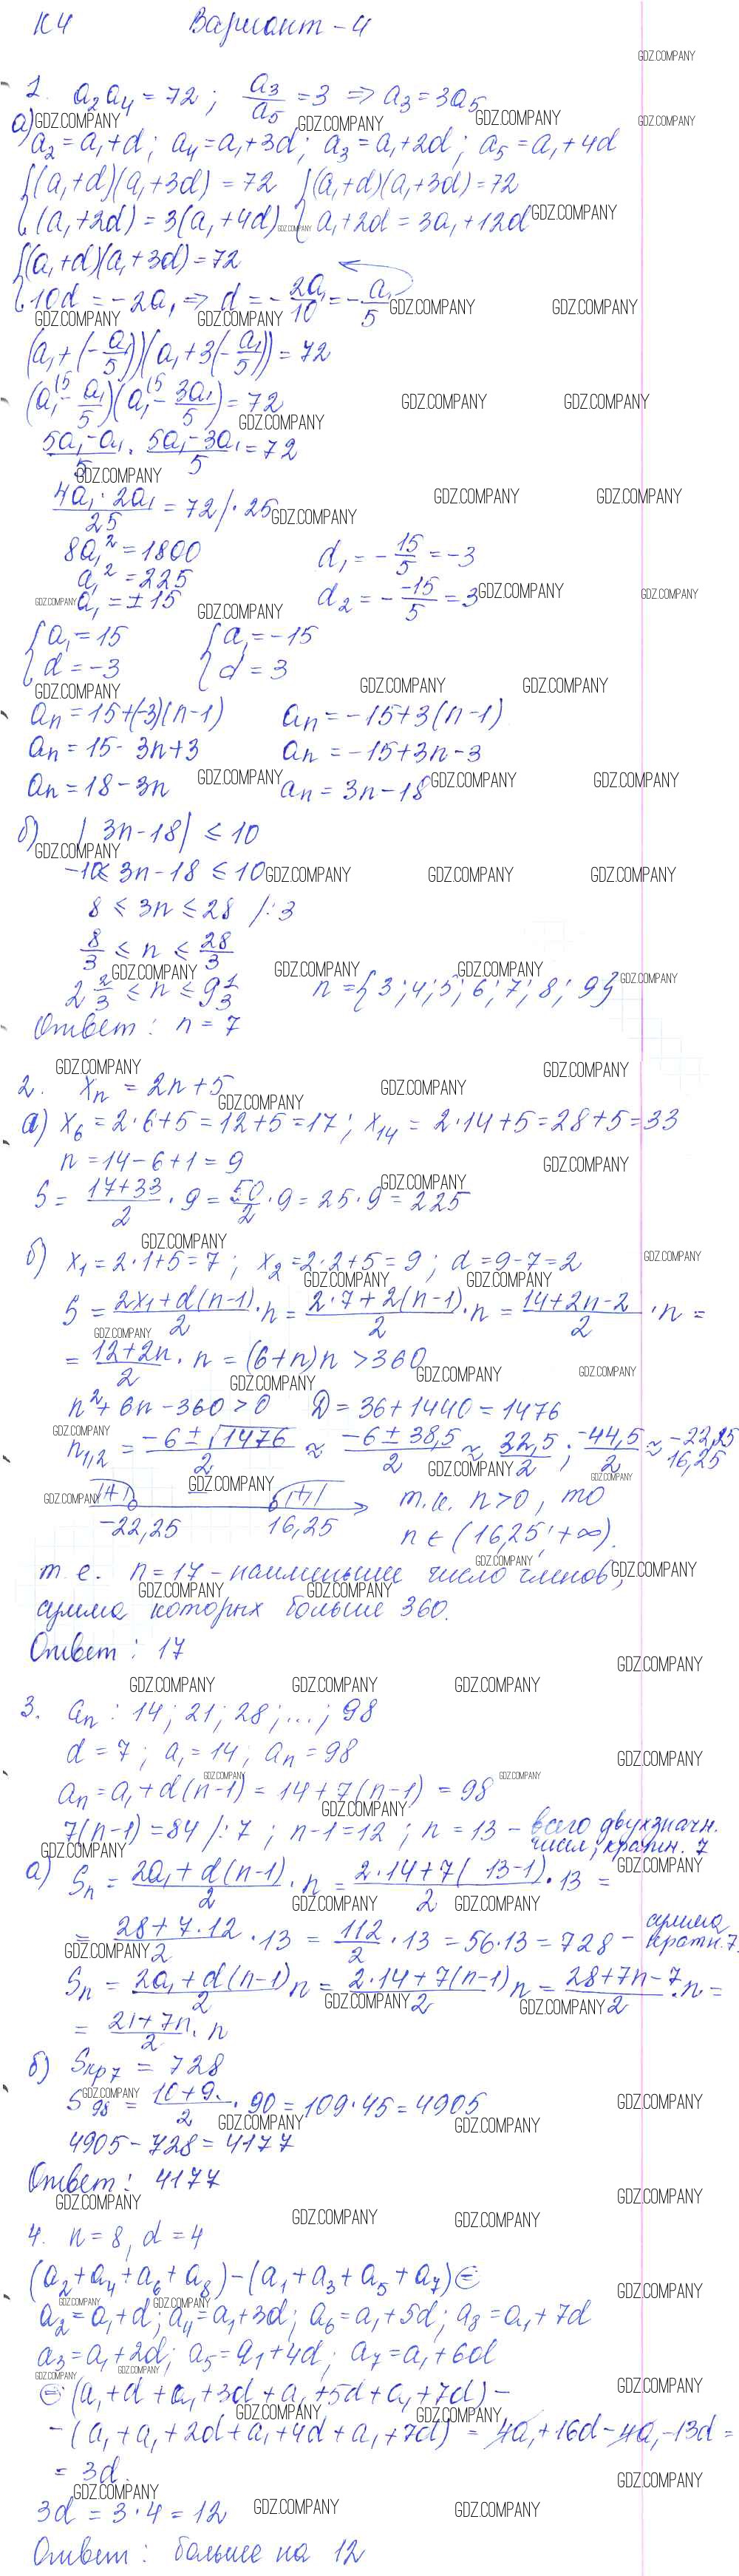 К4 Вариант-4
1. a₂a₄ = 72; a₃/a₅ = 3 ⇒ a₃ = 3a₅
а) a₂ = a₁+d; a₄ = a₁+3d; a₃ = a₁+2d; a₅ = a₁+4d
{(a₁+d)(a₁+3d) = 72 {(a₁+d)(a₁+3d) = 72
{(a₁+2d) = 3(a₁+4d) {a₁+2d = 3a₁+12d
{(a₁+d)(a₁+3d) = 72
{10d = -2a₁ ⇒ d = -2a₁/10 = -a₁/5
(a₁+(-a₁/5))(a₁+3(-a₁/5)) = 72
(a₁⁽⁵ - a₁/5)(a₁⁽⁵ - 3a₁/5) = 72
(5a₁-a₁)/5 · (5a₁-3a₁)/5 = 72
(4a₁·2a₁)/25 = 72 /·25
8a₁² = 1800 d₁ = -15/5 = -3
a₁² = 225
a₁ = ±15 d₂ = -(-15)/5 = 3
{a₁ = 15 {a₁ = -15
{d = -3 {d = 3
aₙ = 15+(-3)(n-1) aₙ = -15+3(n-1)
aₙ = 15-3n+3 aₙ = -15+3n-3
aₙ = 18-3n aₙ = 3n-18
б) |3n-18| ≤ 10
-10 ≤ 3n-18 ≤ 10
8 ≤ 3n ≤ 28 /:3
8/3 ≤ n ≤ 28/3
2 2/3 ≤ n ≤ 9 1/3 n = {3;4;5;6;7;8;9}
Ответ: n = 7
2. xₙ = 2n+5
а) x₆ = 2·6+5 = 12+5 = 17; x₁₄ = 2·14+5 = 28+5 = 33
n = 14-6+1 = 9
S = (17+33)/2 · 9 = 50/2 · 9 = 25·9 = 225
б) x₁ = 2·1+5 = 7; x₂ = 2·2+5 = 9; d = 9-7 = 2
S = (2x₁+d(n-1))/2 · n = (2·7+2(n-1))/2 · n = (14+2n-2)/2 · n =
= (12+2n)/2 · n = (6+n)n > 360
n²+6n-360 > 0 D = 36+1440 = 1476
n₁,₂ = (-6±√1476)/2 ≈ (-6±38,5)/2 ≈ 32,5/2; -44,5/2 ≈ -22,25 16,25
/+\ /+/ т.к. n>0, то
-22,25 16,25 n ∈ (16,25; +∞).
т.е. n = 17 - наименьшее число членов,
сумма которых больше 360.
Ответ: 17
3. aₙ: 14; 21; 28; ...; 98
d = 7; a₁ = 14; aₙ = 98
aₙ = a₁+d(n-1) = 14+7(n-1) = 98
7(n-1) = 84 /:7; n-1 = 12; n = 13 - всего двухзначн. чисел, кратн. 7
а) Sₙ = (2a₁+d(n-1))/2 · n = (2·14+7(13-1))/2 · 13 =
= (28+7·12)/2 · 13 = 112/2 · 13 = 56·13 = 728 - сумма кратн. 7.
Sₙ = (2a₁+d(n-1))/2 n = (2·14+7(n-1))/2 n = (28+7n-7)/2 · n =
= (21+7n)/2 · n
б) Sкр7 = 728
S₉₈ = (10+9.)/2 · 90 = 109·45 = 4905
4905-728 = 4177
Ответ: 4177
4. n = 8, d = 4
(a₂+a₄+a₆+a₈)-(a₁+a₃+a₅+a₇) ⊜
a₂ = a₁+d; a₄ = a₁+3d; a₆ = a₁+5d; a₈ = a₁+7d
a₃ = a₁+2d; a₅ = a₁+4d; a₇ = a₁+6d
⊜ (a₁+d+a₁+3d+a₁+5d+a₁+7d)-
-(a₁+a₁+2d+a₁+4d+a₁+7d) = 4a₁+16d-4a₁-13d =
= 3d.
3d = 3·4 = 12
Ответ: больше на 12
GDZ.COMPANY